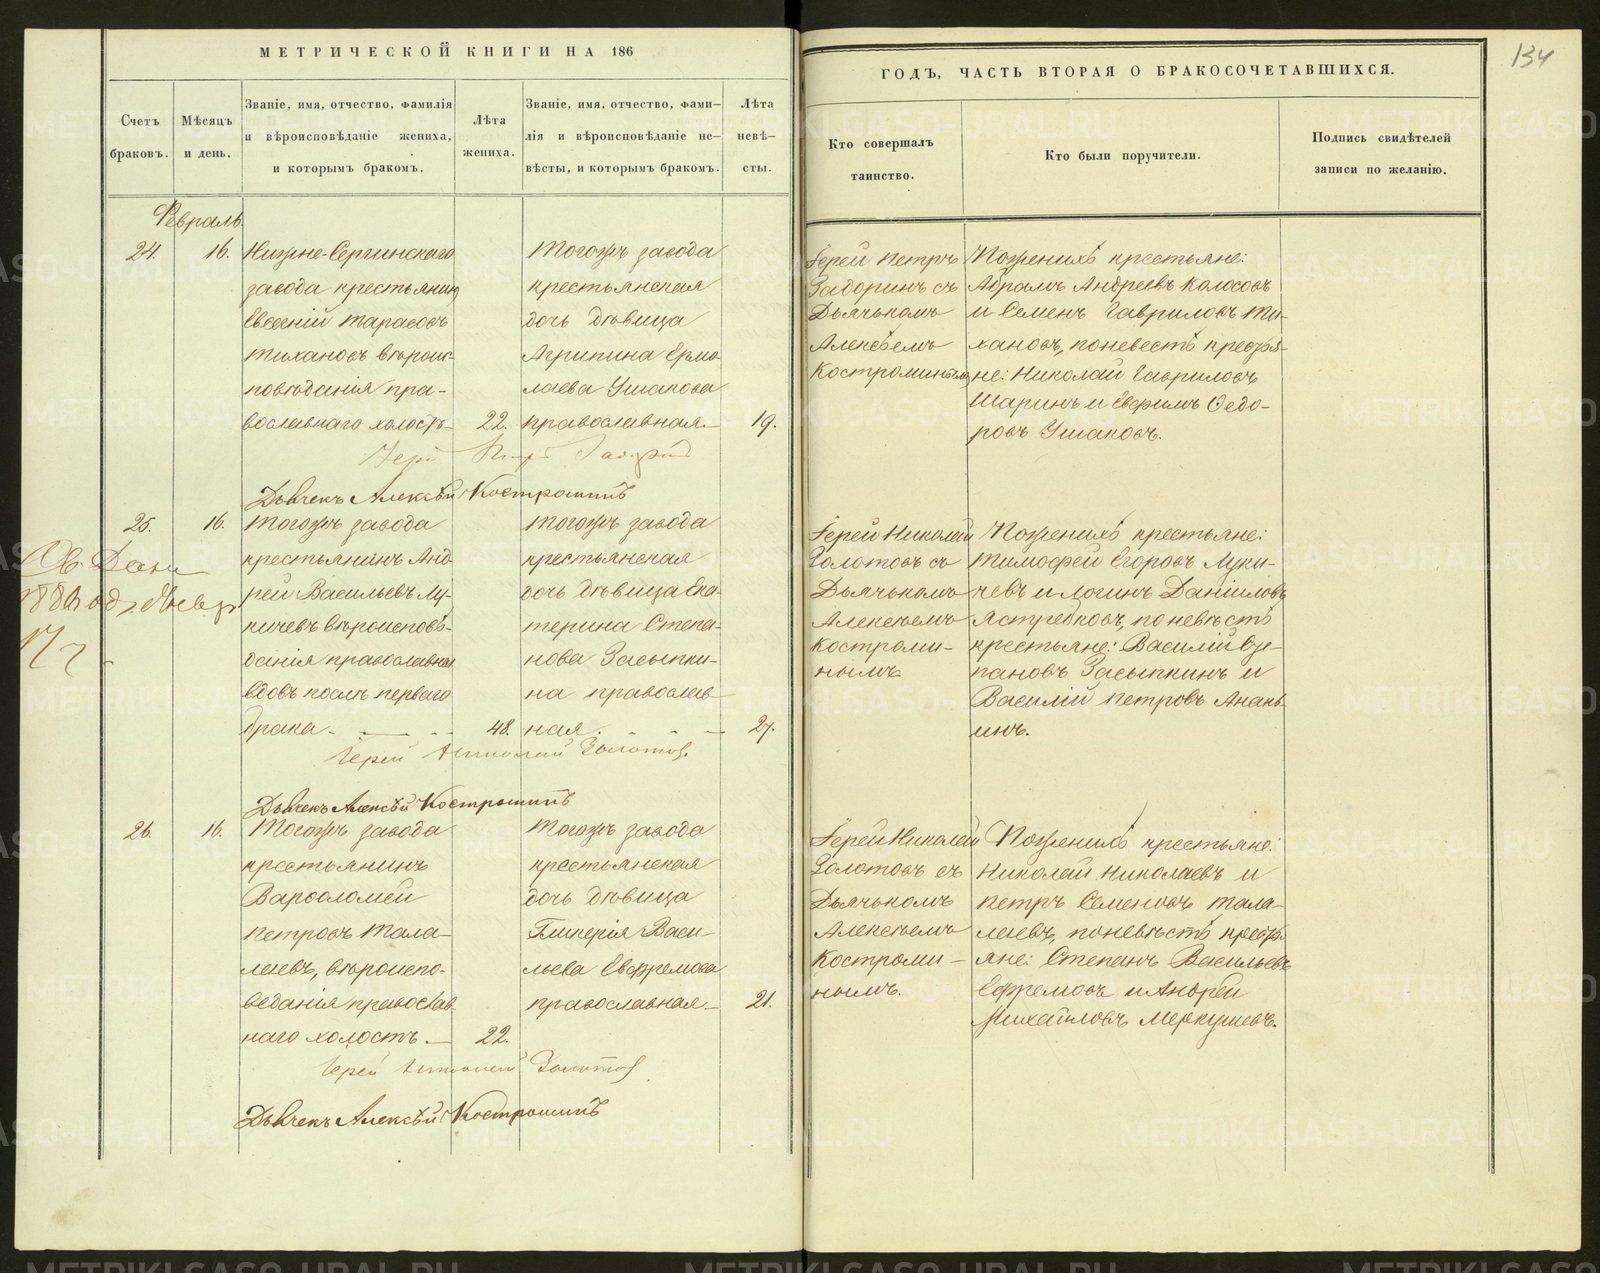 МЕТРИЧЕСКОЙ КНИГИ НА 186
Счетъ браковъ.
Мѣсяцъ и день.
Званіе, имя, отчество, фамилія
и вѣроисповѣданіе жениха,
и которымъ бракомъ.
Лѣта
жениха.
Званіе, имя, отчество, фами-
лія и вѣроисповѣданіе не-
вѣсты, и которымъ бракомъ.
Лѣта
невѣ-
сты.
Февраль.
24.
16.
Нижне-Сергинскаго
завода крестьянинъ
Евгеній Тарасовъ
Тихановъ вѣроис-
повѣданія пра-
вославнаго холостъ
22.
Тогожъ завода
крестьянская
дочь дѣвица
Агрипина Ермо
лаева Ушакова
православная.
19.
Іерей Петръ
Дьячекъ Алексѣй Костроминъ
25.
16.
Тогожъ завода
крестьянинъ Анд
рей Васильевъ Лу-
кичевъ вѣроисповѣ-
данія православнаго
вдовъ послѣ перваго
брака.
48.
Тогожъ завода
крестьянская
дочь дѣвица Ека
терина Степа-
нова Засыпки-
на православ
ная.
27.
Іерей Николай Золотовъ
Дьячекъ Алексѣй Костроминъ
26.
16.
Тогожъ завода
крестьянинъ
Варфоломей
Петровъ Тала-
лаевъ, вѣроиспо-
веданія православ
наго холостъ.
22.
Тогожъ завода
крестьянская
дочь дѣвица
Гликерія Васи-
льева Евфремова
православная
21.
Іерей Николай Золотовъ
Дьячекъ Алексѣй Костроминъ
134
ГОДЪ, ЧАСТЬ ВТОРАЯ О БРАКОСОЧЕТАВШИХСЯ.
Кто совершалъ
таинство.
Кто были поручители.
Подпись свидѣтелей
записи по желанію.
Іерей Петръ
Задоринъ съ
Дьячькомъ
Алексѣемъ
Костроминымъ
Поженихѣ крестьяне:
Абрамъ Андреевъ Колосовъ
и Семенъ Гавриловъ Ти-
хановъ, поневестѣ крестья-
не: Николай Гавриловъ
Шаринъ и Евфимъ Федо-
ровъ Ушаковъ.
Іерей Николай
Золотовъ съ
Дьячькомъ
Алексѣемъ
Костроми-
нымъ
Поженихѣ крестьяне:
Тимофей Егоровъ Луки-
чевъ и Логинъ Даниловъ
Ястребковъ, поневѣстѣ
крестьяне: Василій Сте-
пановъ Засыпкинъ и
Василій Петровъ Анань
инъ.
Іерей Николай
Золотовъ съ
Дьячькомъ
Алексѣемъ
Костроми-
нымъ.
Поженихѣ крестьяне:
Николай Николаевъ и
Петръ Семеновъ Тала-
лаевъ, поневѣстѣ кресть
яне: Степанъ Васильевъ
Ефремовъ и Андрей
Михайловъ Меркушевъ.
METRIKI.GASO-URAL.RU